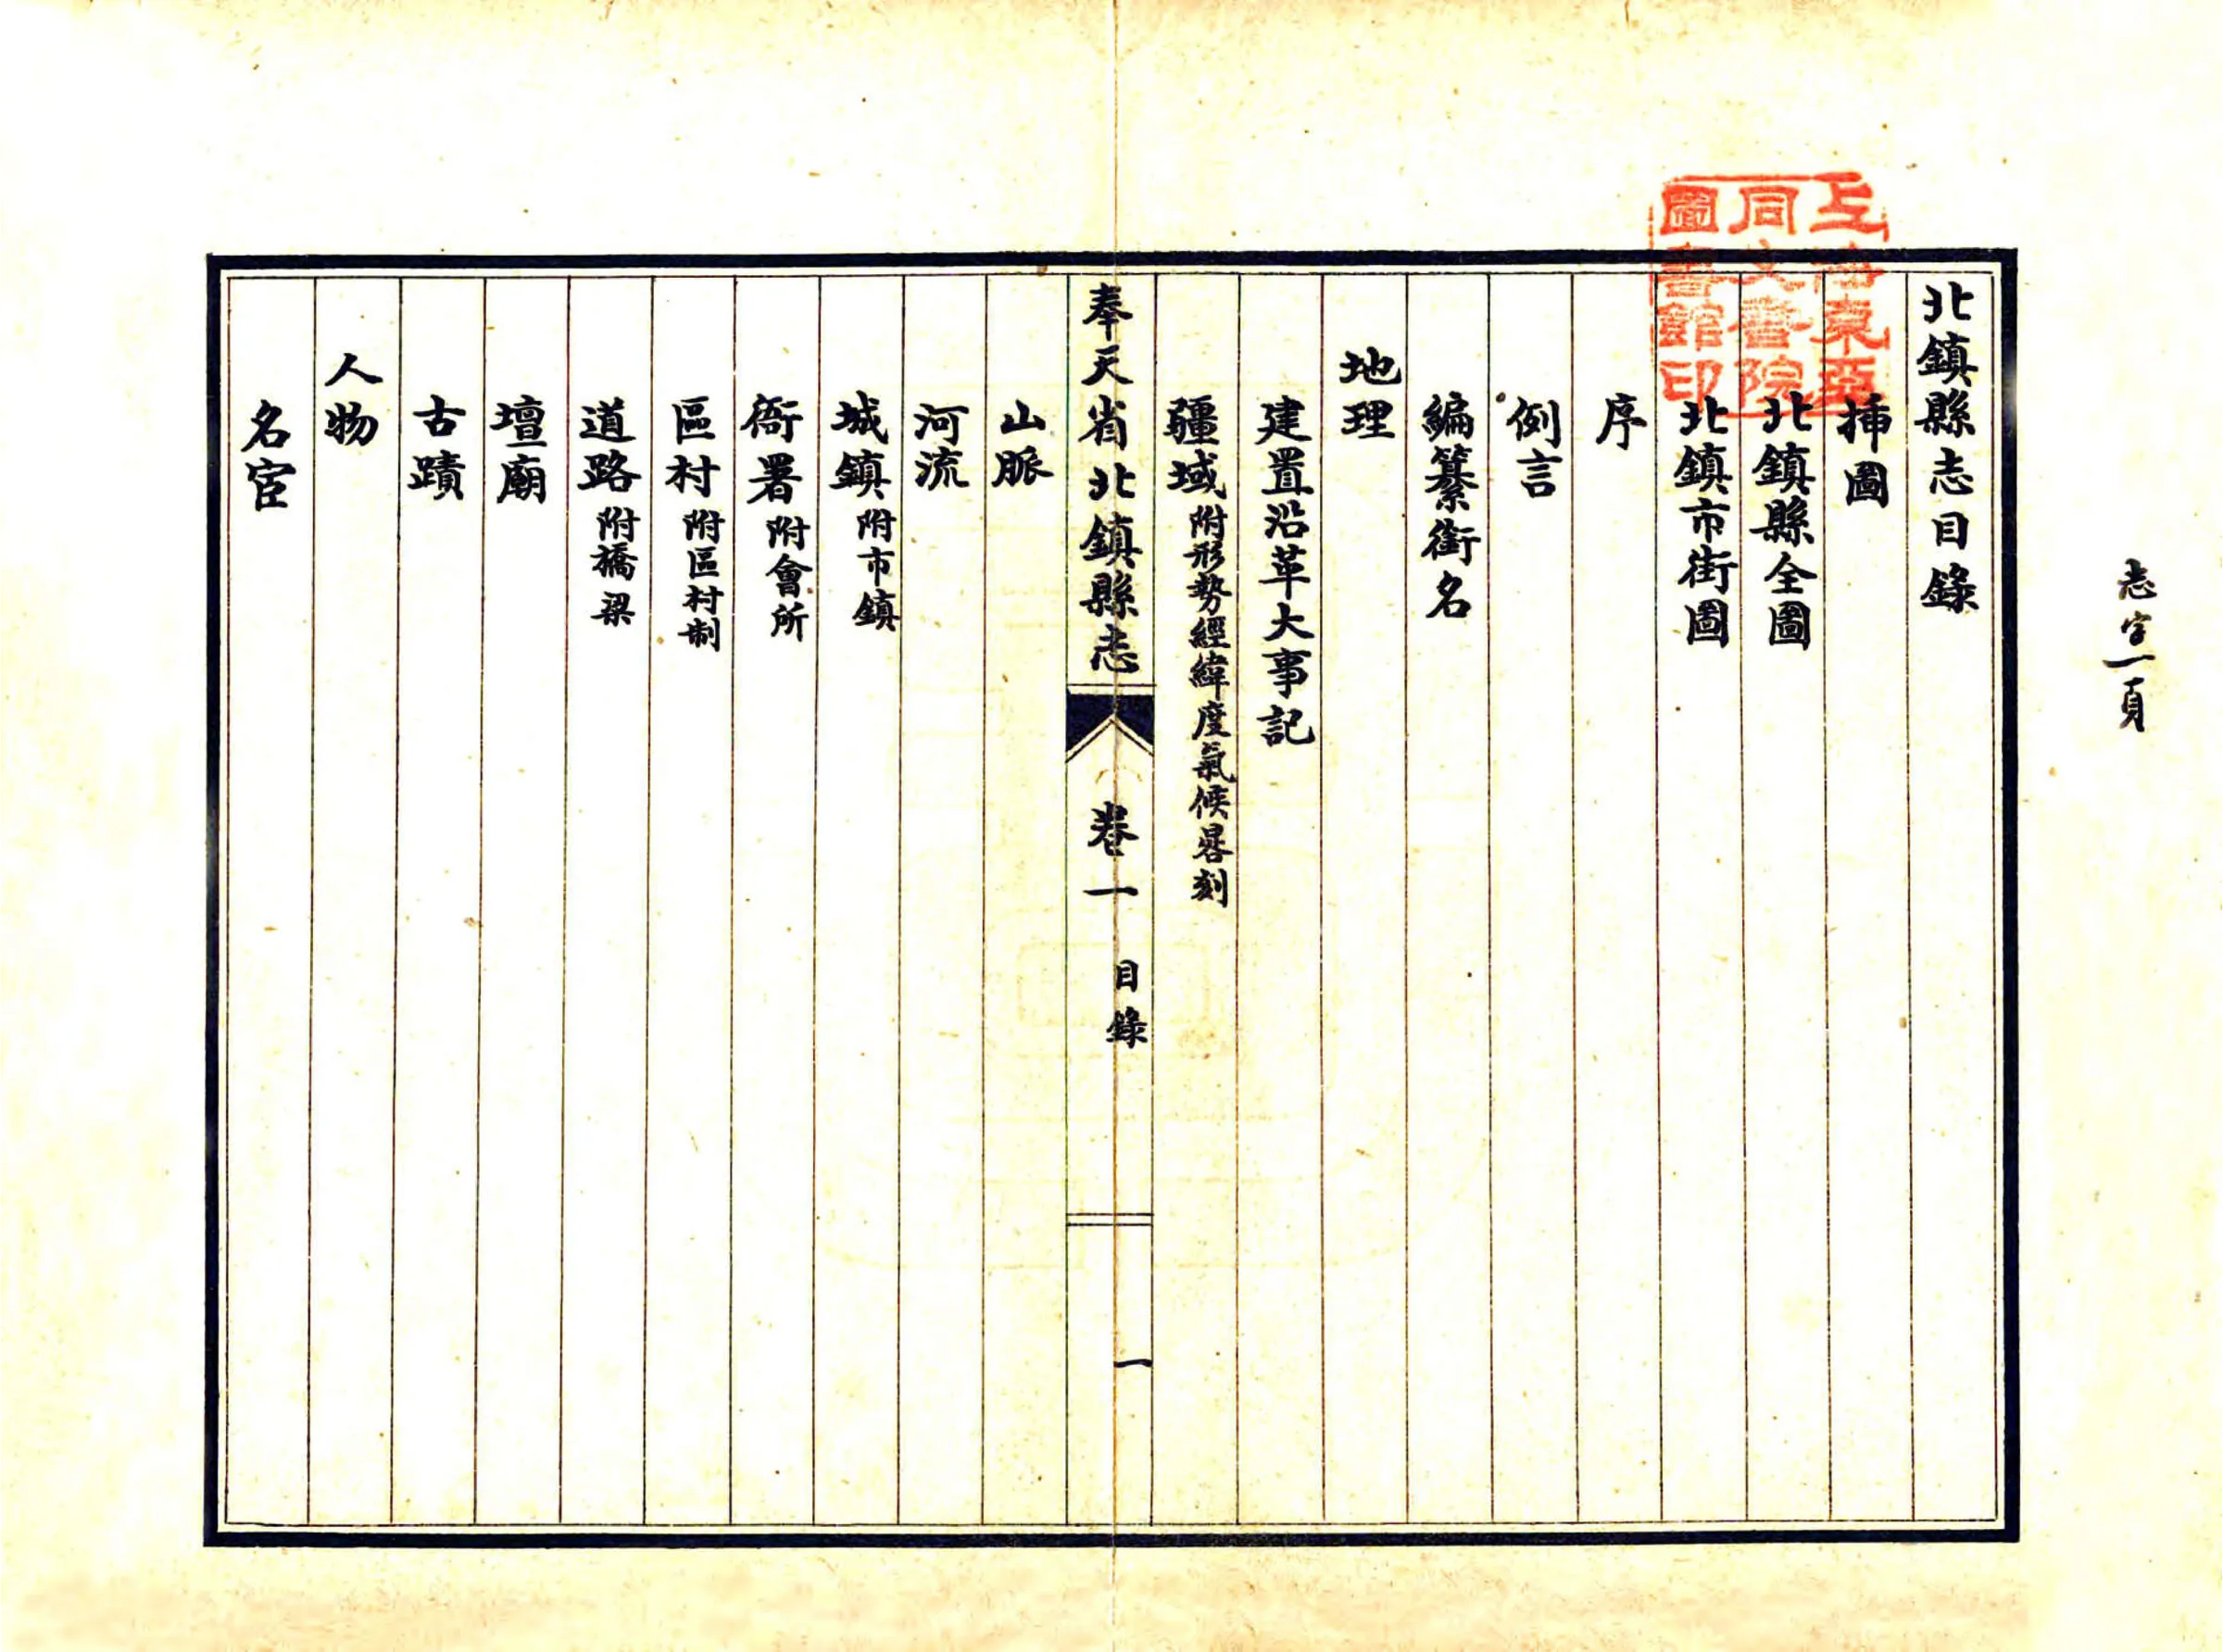 志字一頁
上海東亞
同文書院
圖書館印
北鎮縣志目錄
插圖
北鎮縣全圖
北鎮市街圖
序
例言
編纂銜名
地理
建置沿革大事記
疆域 附形勢經緯度氣候晷刻
奉天省北鎮縣志 卷一 目錄 一
山脈
河流
城鎮 附市鎮
衙署 附會所
區村 附區村制
道路 附橋梁
壇廟
古蹟
人物
名宦